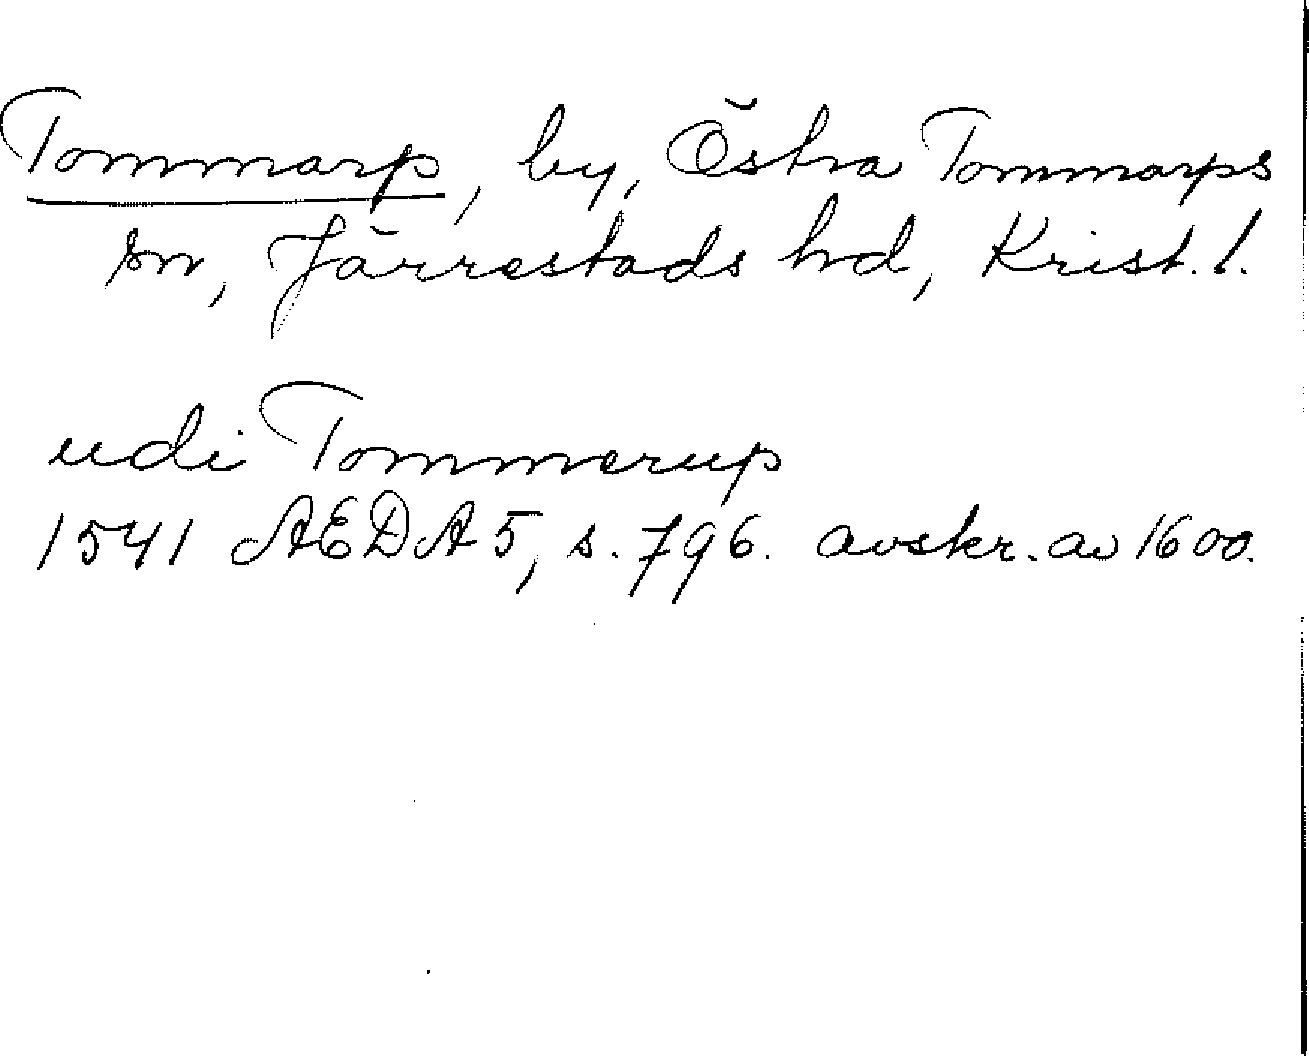 Tommarp, by, Östra Tommarps
sn, Järrestads hd, Krist. l.
udi Tommerup
1541 AEDA 5, s. 796. avskr. av 1600.